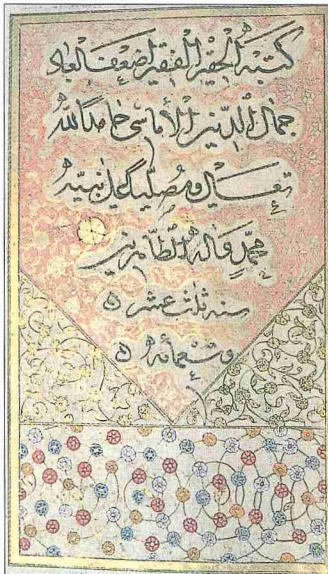 كتبه الحقير الفقير اضعف العباد
جمال الدين الأماسي حامدا لله
تعالى ومصليا على نبيه
محمد وآله الطاهرين
سنه ثلث عشر ه
وتسعمائه ه